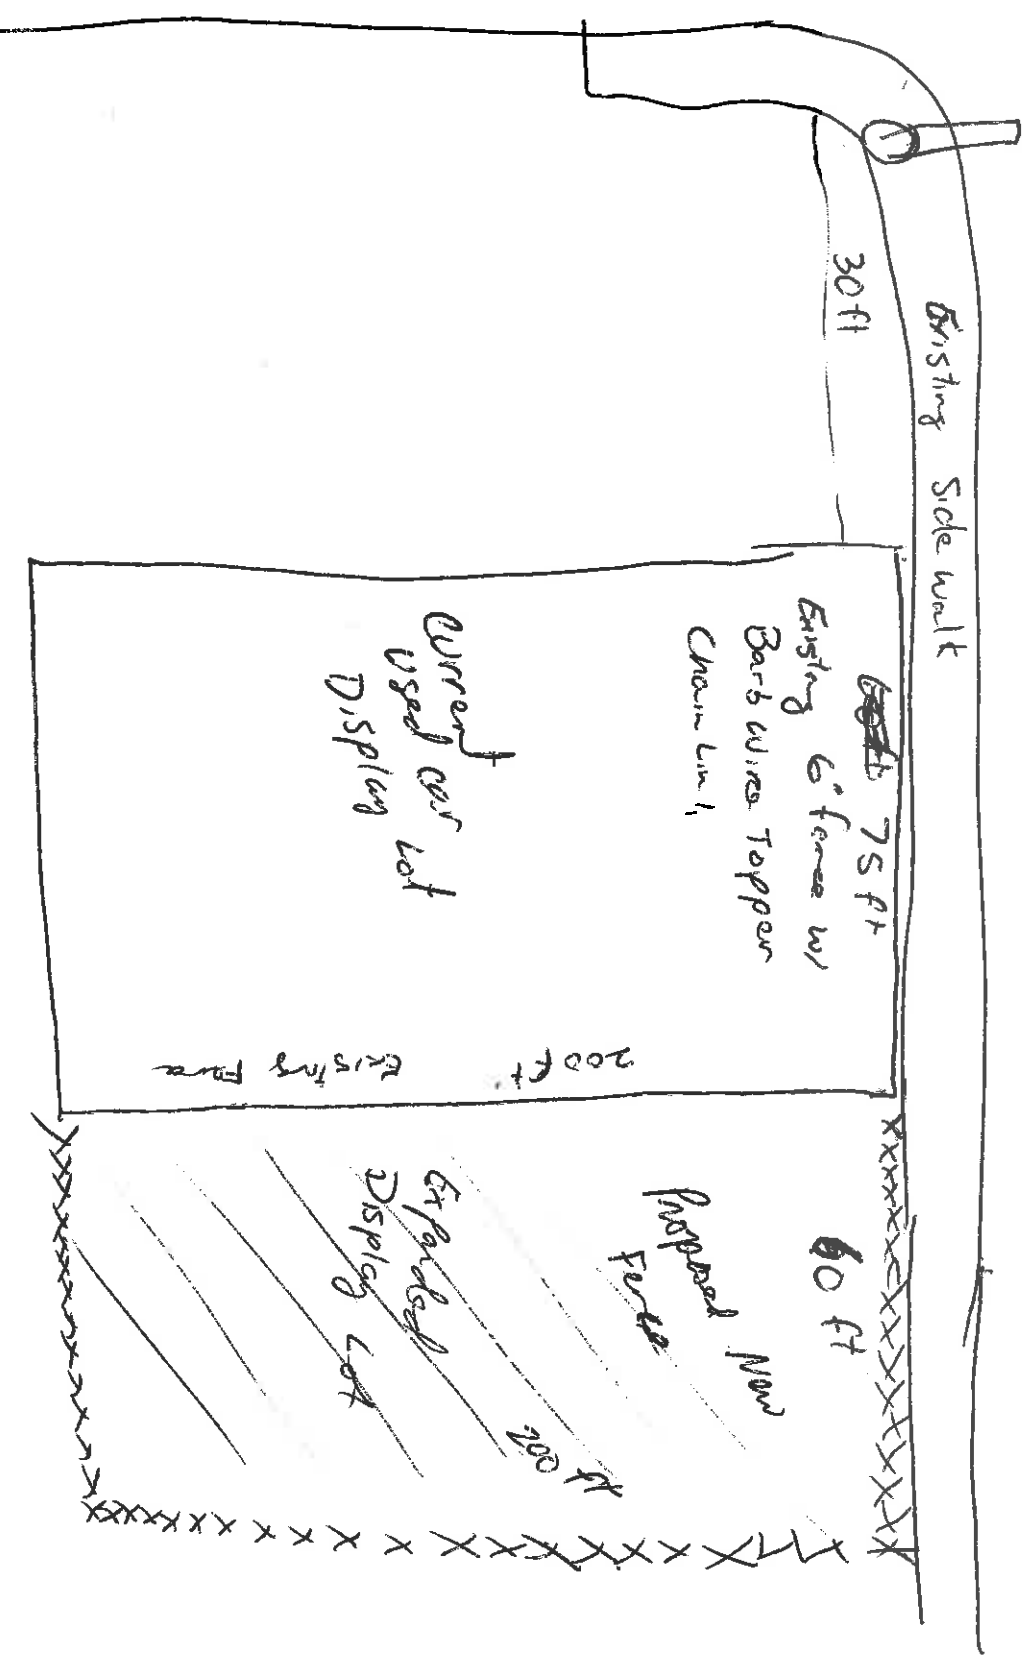 Existing Side walk
30 ft
75 ft
Existing 6' fence w/
Barb Wire Topper
Chain Link
Current
Used Car Lot
Display
200 ft.
Existing Fence
60 ft
Proposed New
Fence
Expanded
Display Lot
200 ft